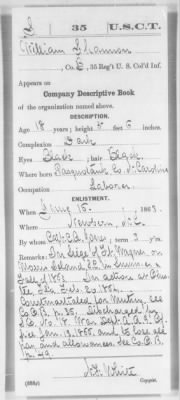 S | 35 | U.S.C.T.
William Shannon
, Co. E, 35 Reg't U. S. Col'd Inf.
Appears on
Company Descriptive Book
of the organization named above.
DESCRIPTION.
Age 18 years; height 5 feet 6 inches.
Complexion Dark
Eyes Black; hair Black
Where born Pasquotank Co N. Carolina
Occupation Laborer
ENLISTMENT.
When June 15, 1863.
Where Newbern, N.C.
By whom ; term 3 y'rs.
Remarks: In siege of Ft. Wagner, on
Morris Island S.C. in Summer &
Fall of 1863. In action at Olus-
tee, Fla. Feb. 20, 1864.
Courtmartialed for Mutiny, see
Co. O.B. Discharged by
S.O. No. 18. War Dept. A.G.O.
Jan. 13, 1865. and to lose all
pay and allowances. See Co. O.B.
White
Copyist.